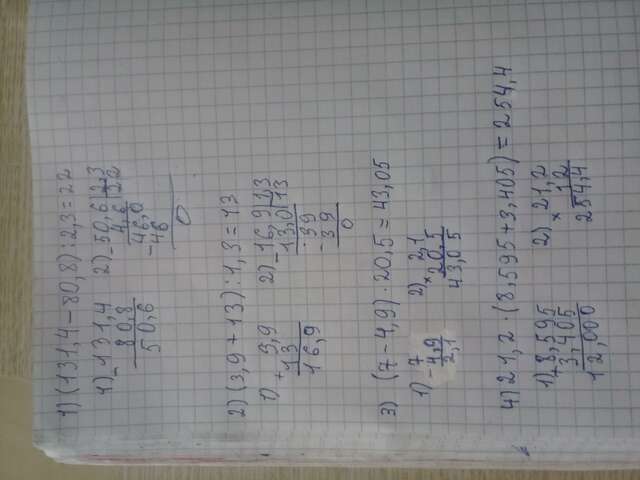 1) (131,4-80,8):2,3=22
1) -131,4 2) -50,6|2,3
80,8 4,6 |22
50,6 46,0
-46
0
2) (3,9+13):1,3=13
1) 3,9 2) -16,9|1,3
+13 13,0|13
16,9 39
-39
0
3) (7-4,9)·20,5=43,05
1) -7 2) 2,1
4,9 ×20,5
2,1 43,05
4) 21,2·(8,595+3,405)=254,4
1) +8,595 2) 21,2
3,405 ×12
12,000 254,4